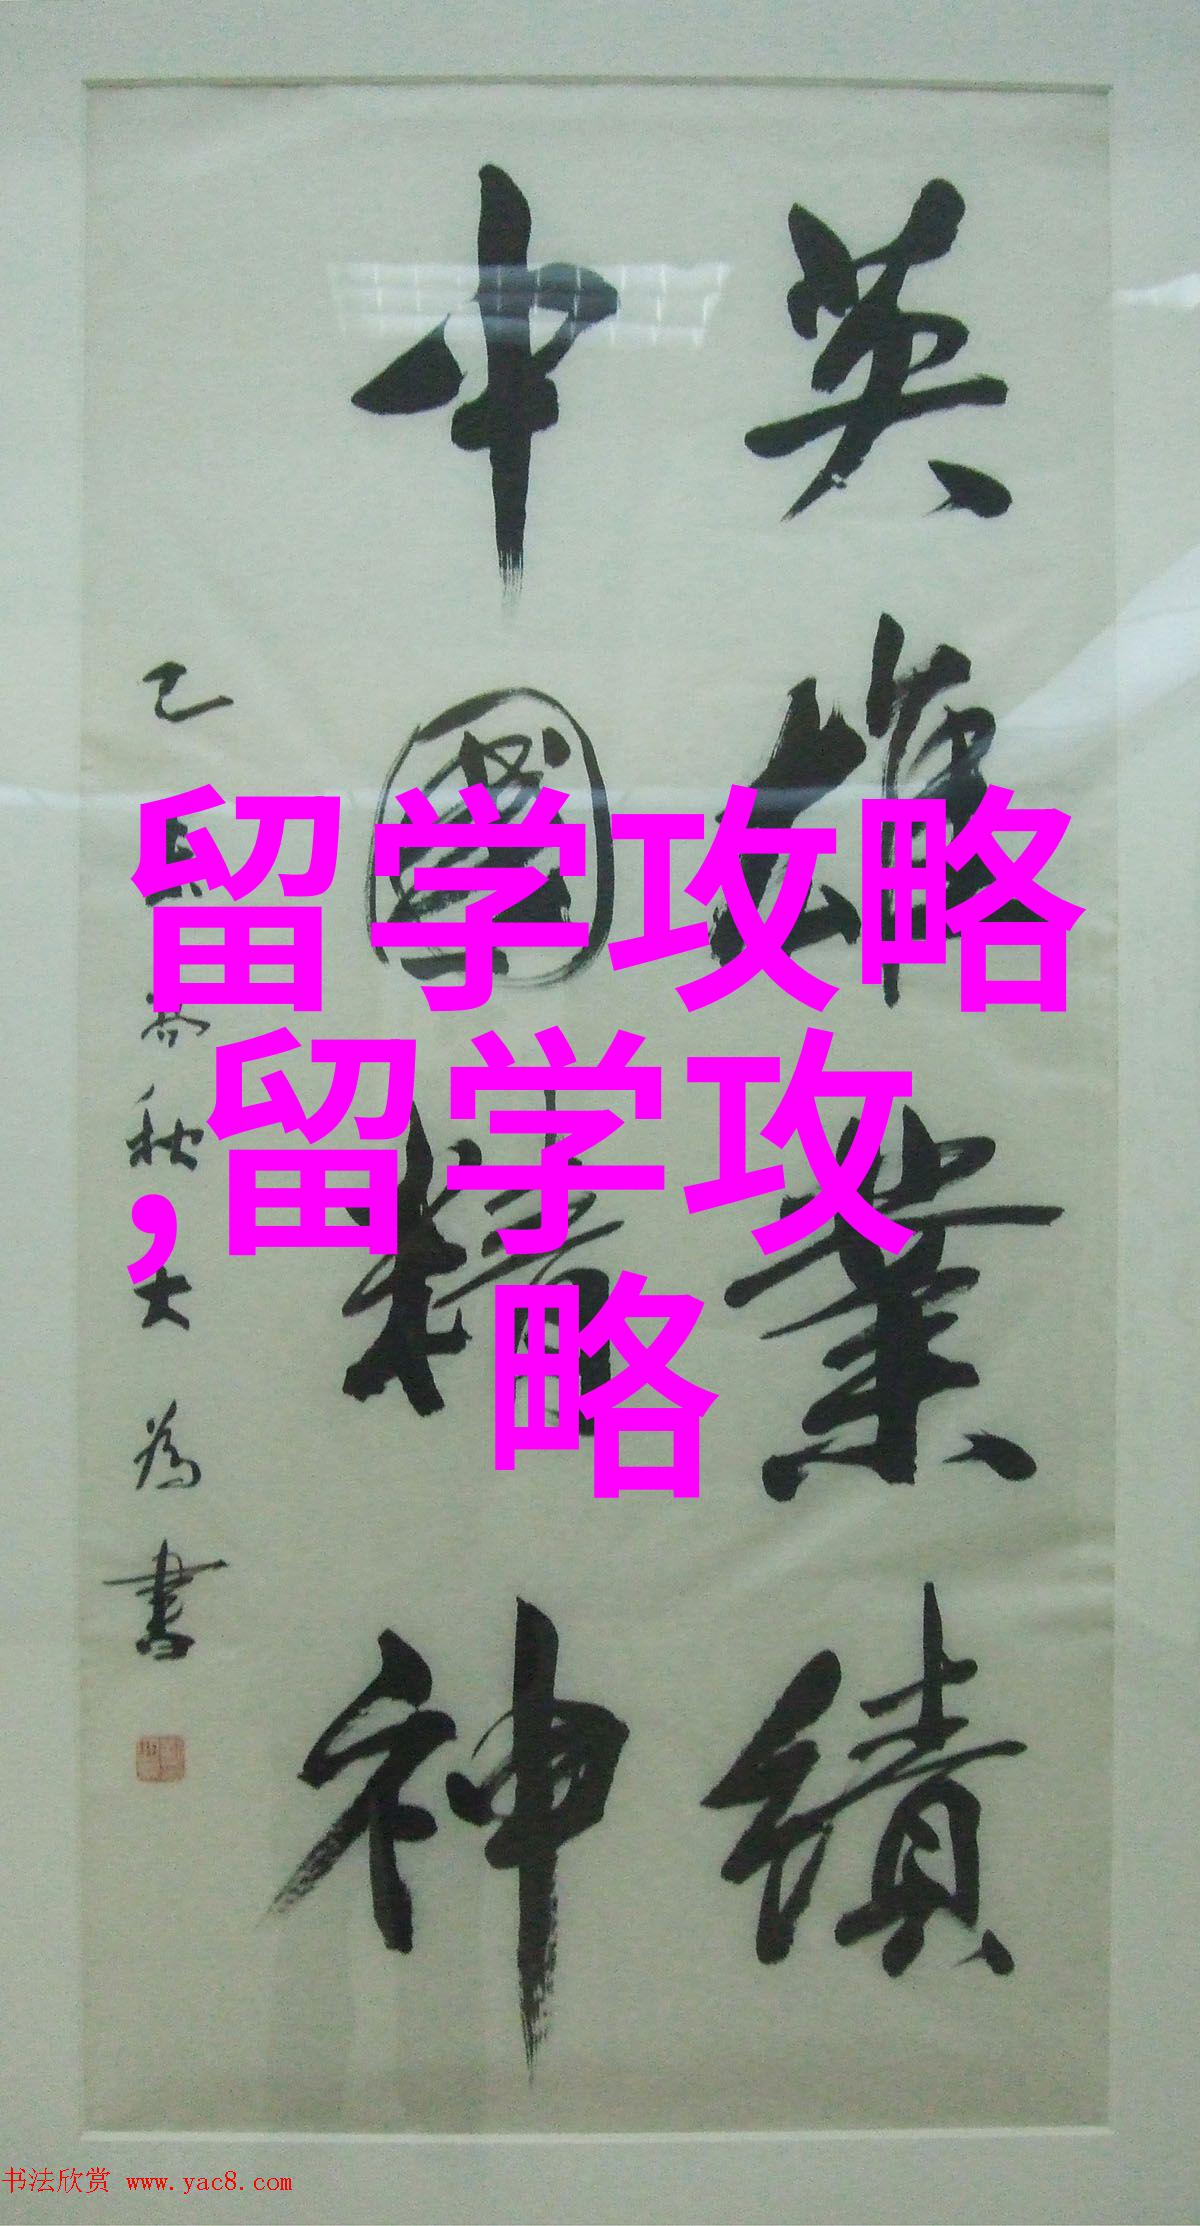 英雄業績
中國精神
乙
秋大為書
留学攻略
,留学攻
略
书法欣赏 www.yac8.com